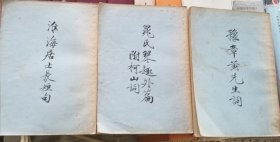 淮海居士長短句
晁氏琴趣外篇
附柯山詞
豫章黃先生詞